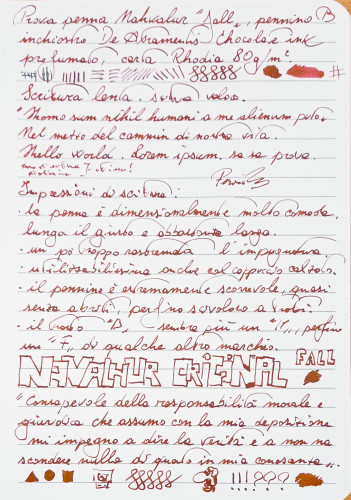 Prova penna Nahvalur "Fall", pennino B
inchiostro De Atramentis Chocolate ink
profumato, carta Rhodia 80g/m².
Scrittura lenta. scrittura veloce.
"Homo sum nihil humani a me alienum puto.
Nel mezzo del cammin di nostra vita.
Hello world. Lorem ipsum. sa sa prova.
Impressioni di scrittura:
· la penna è dimensionalmente molto comoda,
lunga il giusto e abbastanza larga.
· un po' troppo rastremata l'impugnatura.
· utilizzabilissima anche col cappuccio calzato.
· il pennino è estremamente scorrevole, quasi
senza attriti, perfino scivoloso a tratti!
· il tratto "B" sembra più un "M", perfino
un "F" di qualche altro marchio.
NAVALHUR ORIGINAL FALL
"Consapevole della responsabilità morale e
giuridica che assumo con la mia deposizione
mi impegno a dire la verità e a non na
scondere nulla di quanto in mia conoscenza..."